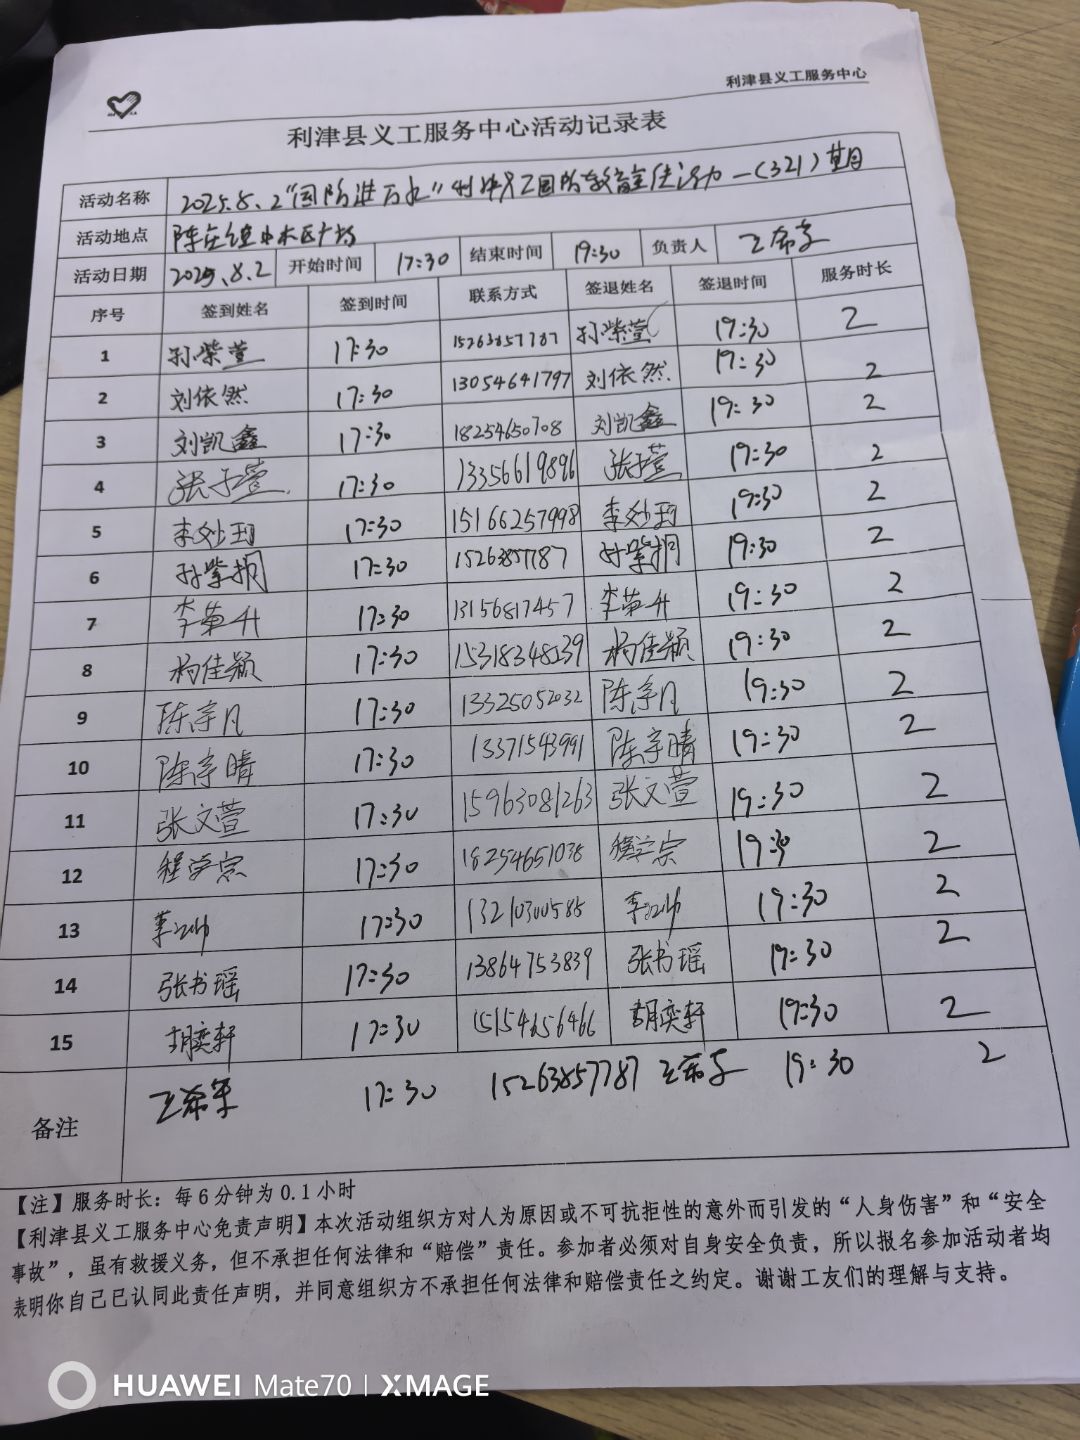 利津县义工服务中心
利津县义工服务中心活动记录表
活动名称 2025.8.2“国防进万家” 国防教育宣传活动—(321)期
活动地点 陈庄镇中木区广场
活动日期 2025.8.2 开始时间 17:30 结束时间 19:30 负责人 王希孝
序号 签到姓名 签到时间 联系方式 签退姓名 签退时间 服务时长
1 孙紫萱 17:30 15263857787 孙紫萱 19:30 2
2 刘依然 17:30 13054641797 刘依然 19:30 2
3 刘凯鑫 17:30 18254650708 刘凯鑫 19:30 2
4 张子萱 17:30 13356619896 张子萱 19:30 2
5 李妙玥 17:30 15166257998 李妙玥 19:30 2
6 孙紫桐 17:30 15263857787 孙紫桐 19:30 2
7 李荣升 17:30 13156817457 李荣升 19:30 2
8 杨佳颖 17:30 15318348239 杨佳颖 19:30 2
9 陈宇凡 17:30 13325052032 陈宇凡 19:30 2
10 陈宇晴 17:30 13371543991 陈宇晴 19:30 2
11 张文萱 17:30 15963081263 张文萱 19:30 2
12 程学宗 17:30 18254651038 程学宗 19:30 2
13 17:30 13210300585 19:30 2
14 张书瑶 17:30 13864753839 张书瑶 19:30 2
15 胡奕轩 17:30 15154656466 胡奕轩 19:30 2
备注 王希孝 17:30 15263857787 王希孝 19:30 2
【注】服务时长：每6分钟为0.1小时
【利津县义工服务中心免责声明】本次活动组织方对人为原因或不可抗拒性的意外而引发的“人身伤害”和“安全
事故”，虽有救援义务，但不承担任何法律和“赔偿”责任。参加者必须对自身安全负责，所以报名参加活动者均
表明你自己已认同此责任声明，并同意组织方不承担任何法律和赔偿责任之约定。谢谢工友们的理解与支持。
HUAWEI Mate70 | XMAGE